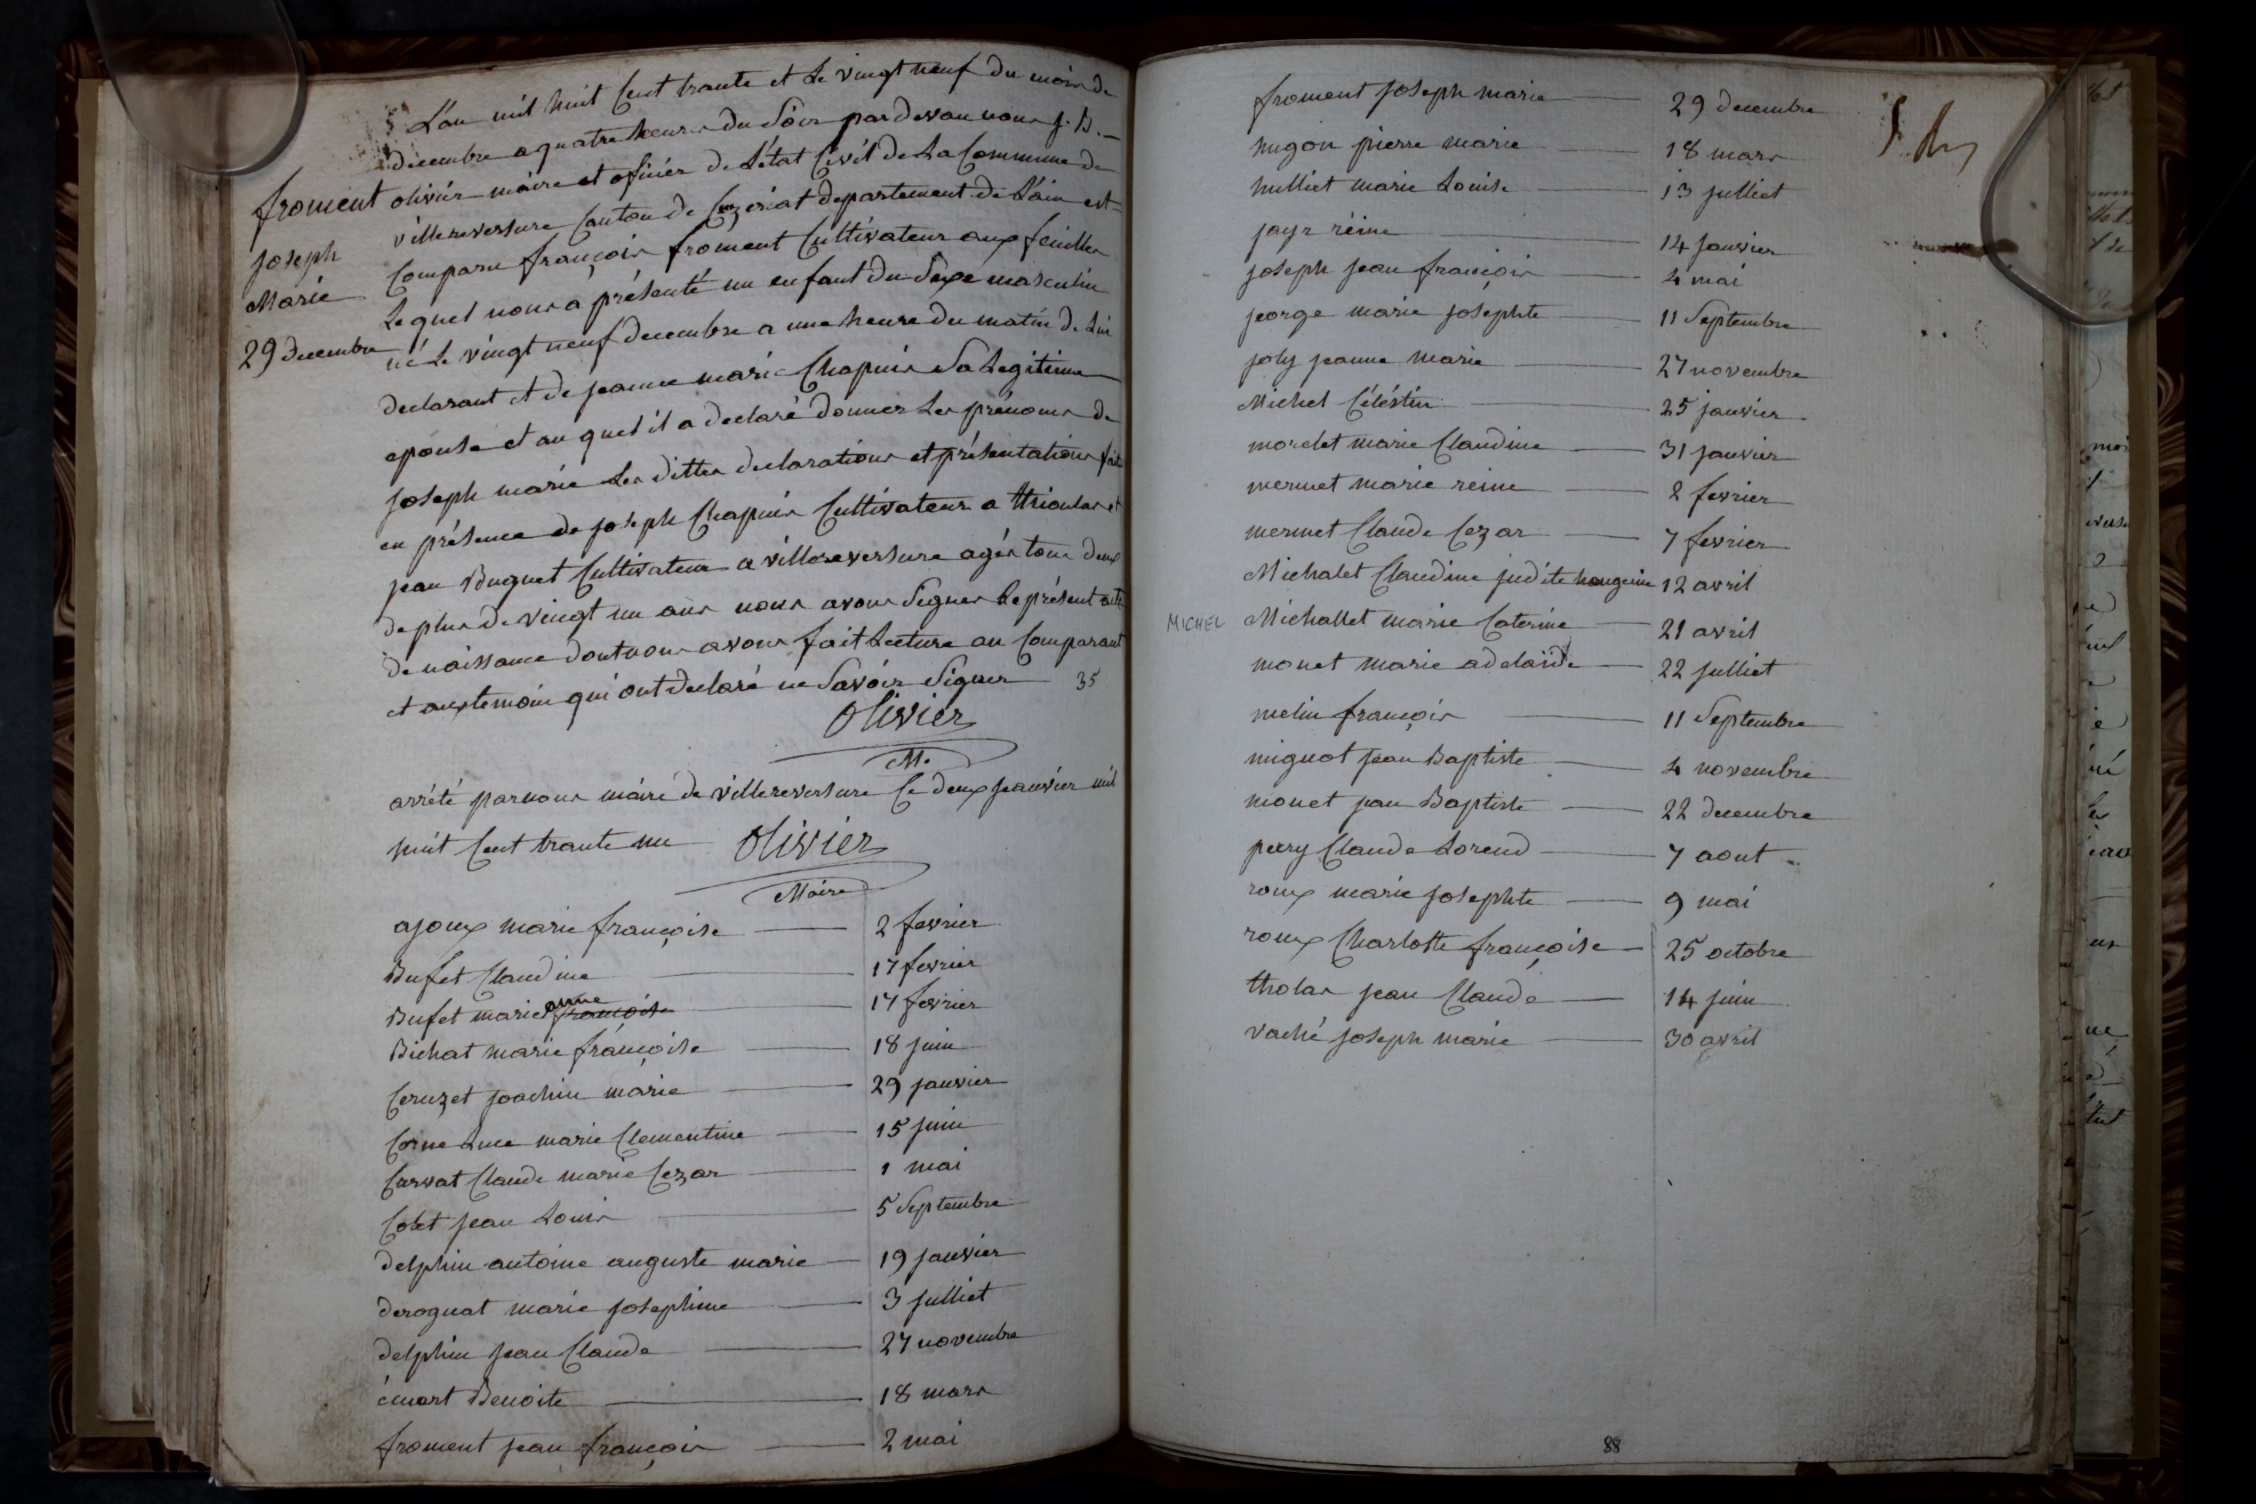 L'an mil huit Cent trante et Le vingt neuf du mois de
decembre a quatre heures du Soir par devan nous j. B.
froment
olivier maire et oficiér de L'état Civil de La Commune de
villereversure Canton de Ceyzeriat departement de L'ain est
joseph
Comparu françois froment Cultivateur aux feuilles
Marie
Lequel nous a présenté un enfant du Sexe masculin
29 decembre
né Le vingt neuf decembre a une heure du matin de Lui
declarant et de jeanne marie Chapuis Sa Legitime
epouse et au quel il a declaré donner Les prénoms de
joseph marie Les dittes declarations et présentations fait
en présence de joseph Chapuis Cultivateur a et
jean Buguet Cultivateur a villereversure agés tous deux
de plus de vingt un ans nous avons Signer Le présent acte
de naissance dont nous avons fait Lecture au Comparant
et aux temoin qui ont declaré ne Savoir Signer 35
Olivier
M.
arrété par nous maire de villereversure Ce deux jeanvier mil
huit Cent trante un Olivier
Maire
ajoux marie françoise 2 fevrier
Bufet Claudine 17 fevrier
Bufet marie anne françoise 17 fevrier
Bichat marie françoise 18 juin
Ceruzet joachim marie 29 janvier
Corne Luce marie Clementine 15 juin
Curvat Claude marie Cezar 1 mai
Cobet jean Louis 5 Septembre
delphin antoine auguste marie 19 janvier
deroguat marie josephine 3 julliet
delphin jean Claude 27 novembre
émort Benoite 18 mars
froment jean françois 2 mai
froment joseph marie 29 decembre
hugon pierre marie 18 mars
hulliet marie Louise 13 julliet
jayr réine 14 janvier
joseph jean françois 4 mai
jeorge marie josephte 11 Septembre
joly jeanne marie 27 novembre
Michel Céléstin 25 janvier
morelet marie Claudine 31 janvier
mermet marie reine 2 fevrier
mermet Claude Cezar 7 fevrier
Michalet Claudine judite 12 avril
MICHEL Michallet marie Caterine 21 avril
monet marie adelaïde 22 julliet
melin françois 11 Septembre
mignot jean Baptiste 4 novembre
monet jean Baptiste 22 decembre
perry Claude Lorend 7 aout
roux marie josephte 9 mai
roux Charlotte françoise 25 octobre
tholas jean Claude 14 juin
vaché joseph marie 30 avril
88